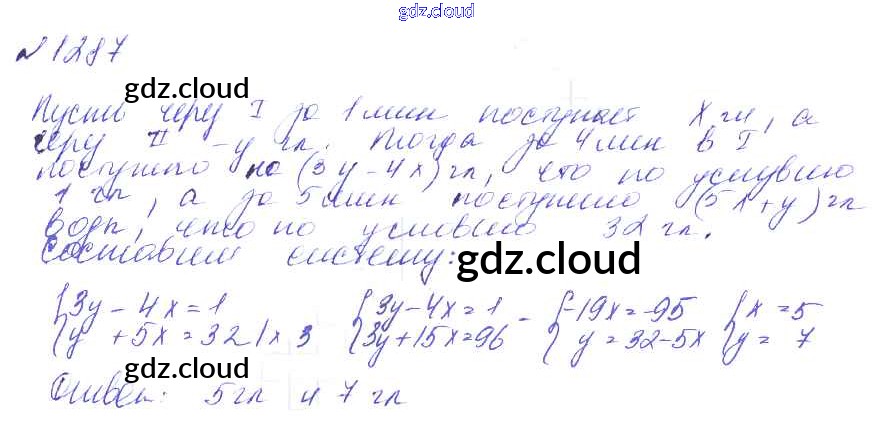 gdz.cloud
№1287
gdz.cloud
Пусть через I за 1 мин поступает x гл, а
через II - y гл. Тогда за 4 мин в I
поступило на (3y - 4x) гл, что по условию
1 гл, а за 5 мин поступило (5x + y) гл
воды, что по условию 32 гл.
Составим систему:
gdz.cloud
{3y - 4x = 1 {3y - 4x = 1 - {-19x = -95 {x = 5
{y + 5x = 32 | x 3 {3y + 15x = 96 {y = 32 - 5x {y = 7
gdz.cloud
Ответ: 5 гл и 7 гл